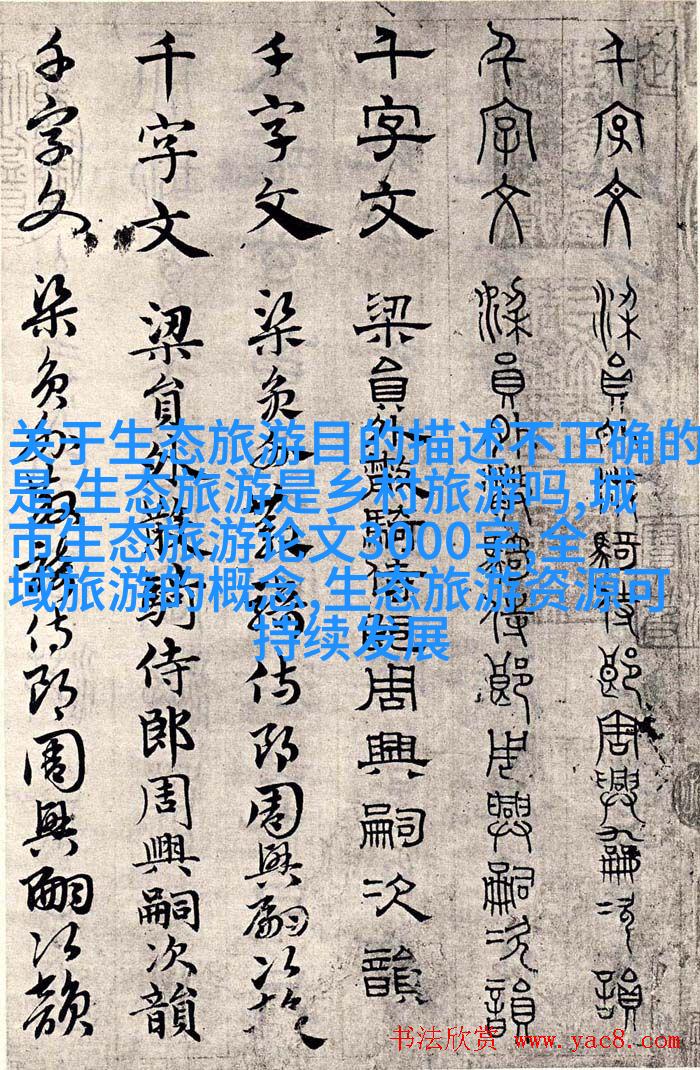 千字文 梁員外散騎侍郎周興嗣次韻
千字文 梁員外散騎侍郎周興嗣次韻
千字文 梁員外散騎侍郎周興嗣次韻
千字文 梁員外散騎侍郎周興嗣次韻
千字文 梁員外散騎侍郎周興嗣次韻
千字文 梁員外散騎侍郎周興嗣次韻
关于生态旅游目的描述不正确的
是,生态旅游是乡村旅游吗,城
市生态旅游论文3000字,全
域旅游的概念,生态旅游资源可
持续发展
书法欣赏 www.yac8.com